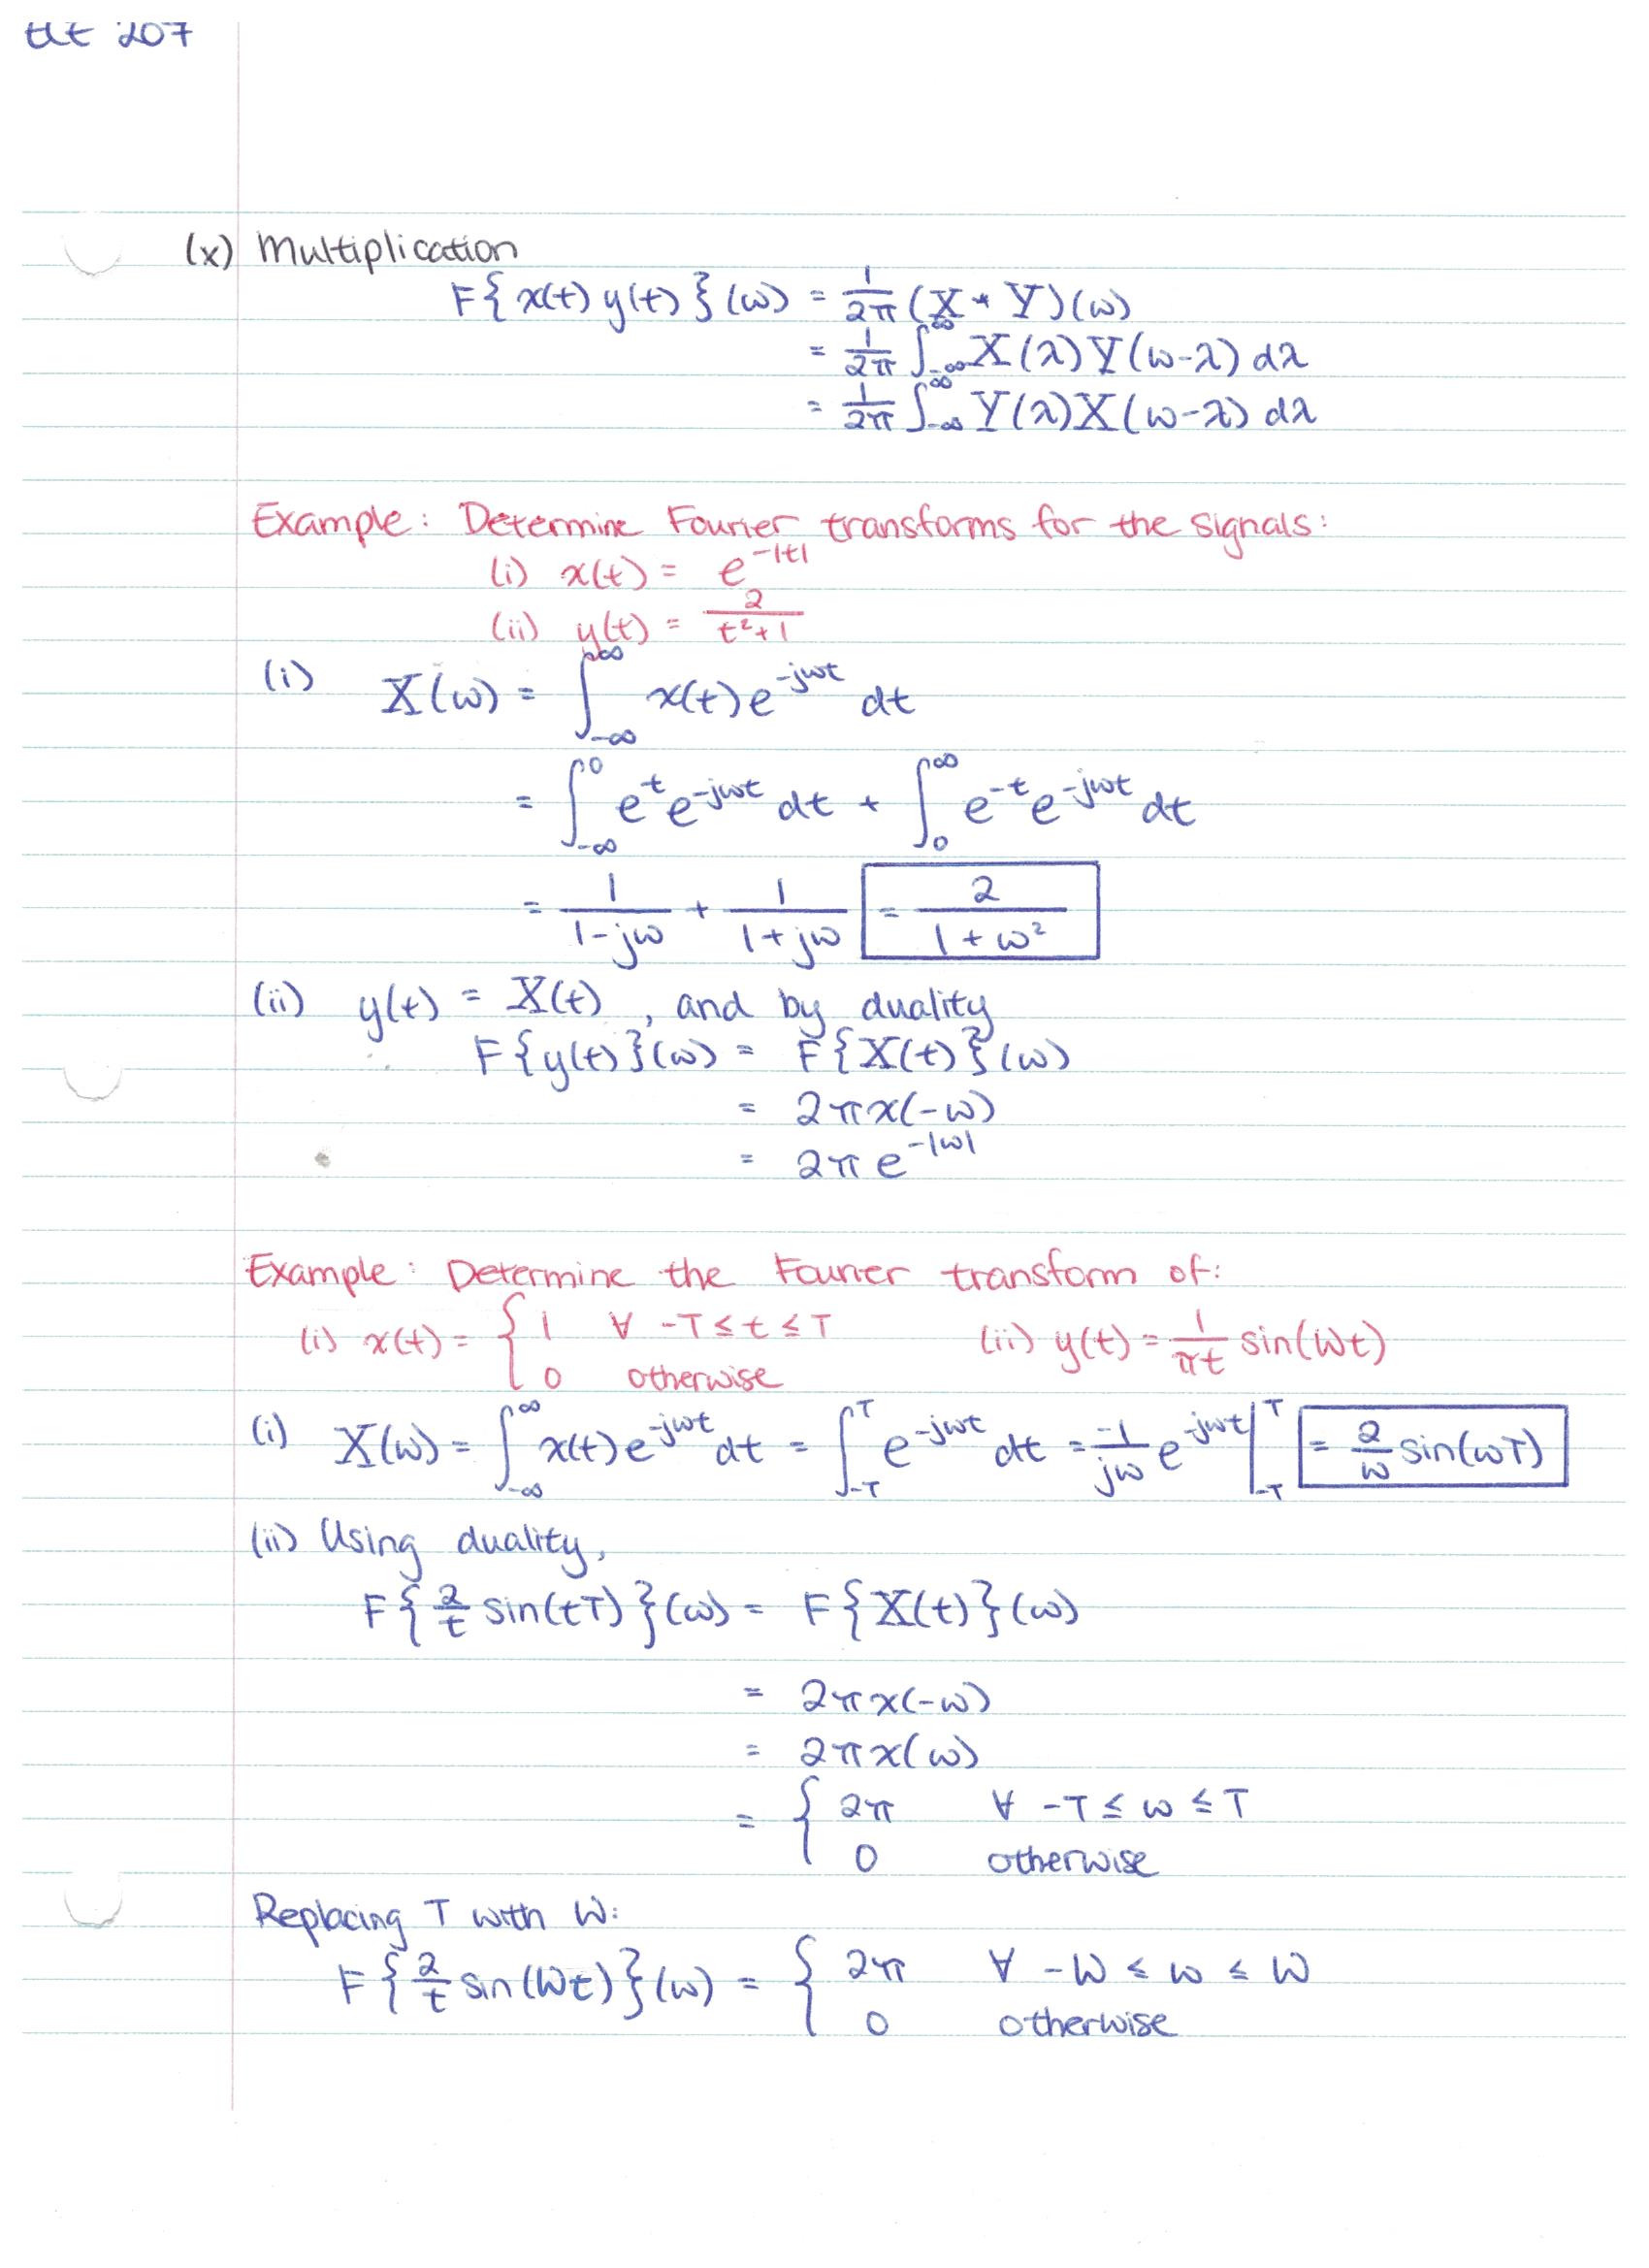 207
(x) Multiplication
F{x(t) y(t)}(ω) = 1/2π (X * Y)(ω)
= 1/2π ∫_{-∞}^{∞} X(λ)Y(ω-λ) dλ
= 1/2π ∫_{-∞}^{∞} Y(λ)X(ω-λ) dλ
Example: Determine Fourier transforms for the signals:
(i) x(t) = e^{-|t|}
(ii) y(t) = 2/(t²+1)
(i) X(ω) = ∫_{-∞}^{∞} x(t)e^{-jωt} dt
= ∫_{-∞}^{0} e^{t}e^{-jωt} dt + ∫_{0}^{∞} e^{-t}e^{-jωt} dt
= 1/(1-jω) + 1/(1+jω) = 2/(1+ω²)
(ii) y(t) = X(t), and by duality
F{y(t)}(ω) = F{X(t)}(ω)
= 2πx(-ω)
= 2πe^{-|ω|}
Example: Determine the Fourier transform of:
(i) x(t) = { 1 ∀ -T ≤ t ≤ T (ii) y(t) = 1/πt sin(Wt)
0 otherwise
(i) X(ω) = ∫_{-∞}^{∞} x(t)e^{-jωt} dt = ∫_{-T}^{T} e^{-jωt} dt = -1/jω e^{-jωt}|_{-T}^{T} = 2/ω sin(ωT)
(ii) Using duality,
F{2/t sin(tT)}(ω) = F{X(t)}(ω)
= 2πx(-ω)
= 2πx(ω)
= { 2π ∀ -T ≤ ω ≤ T
0 otherwise
Replacing T with W:
F{2/t sin(Wt)}(ω) = { 2π ∀ -W ≤ ω ≤ W
0 otherwise